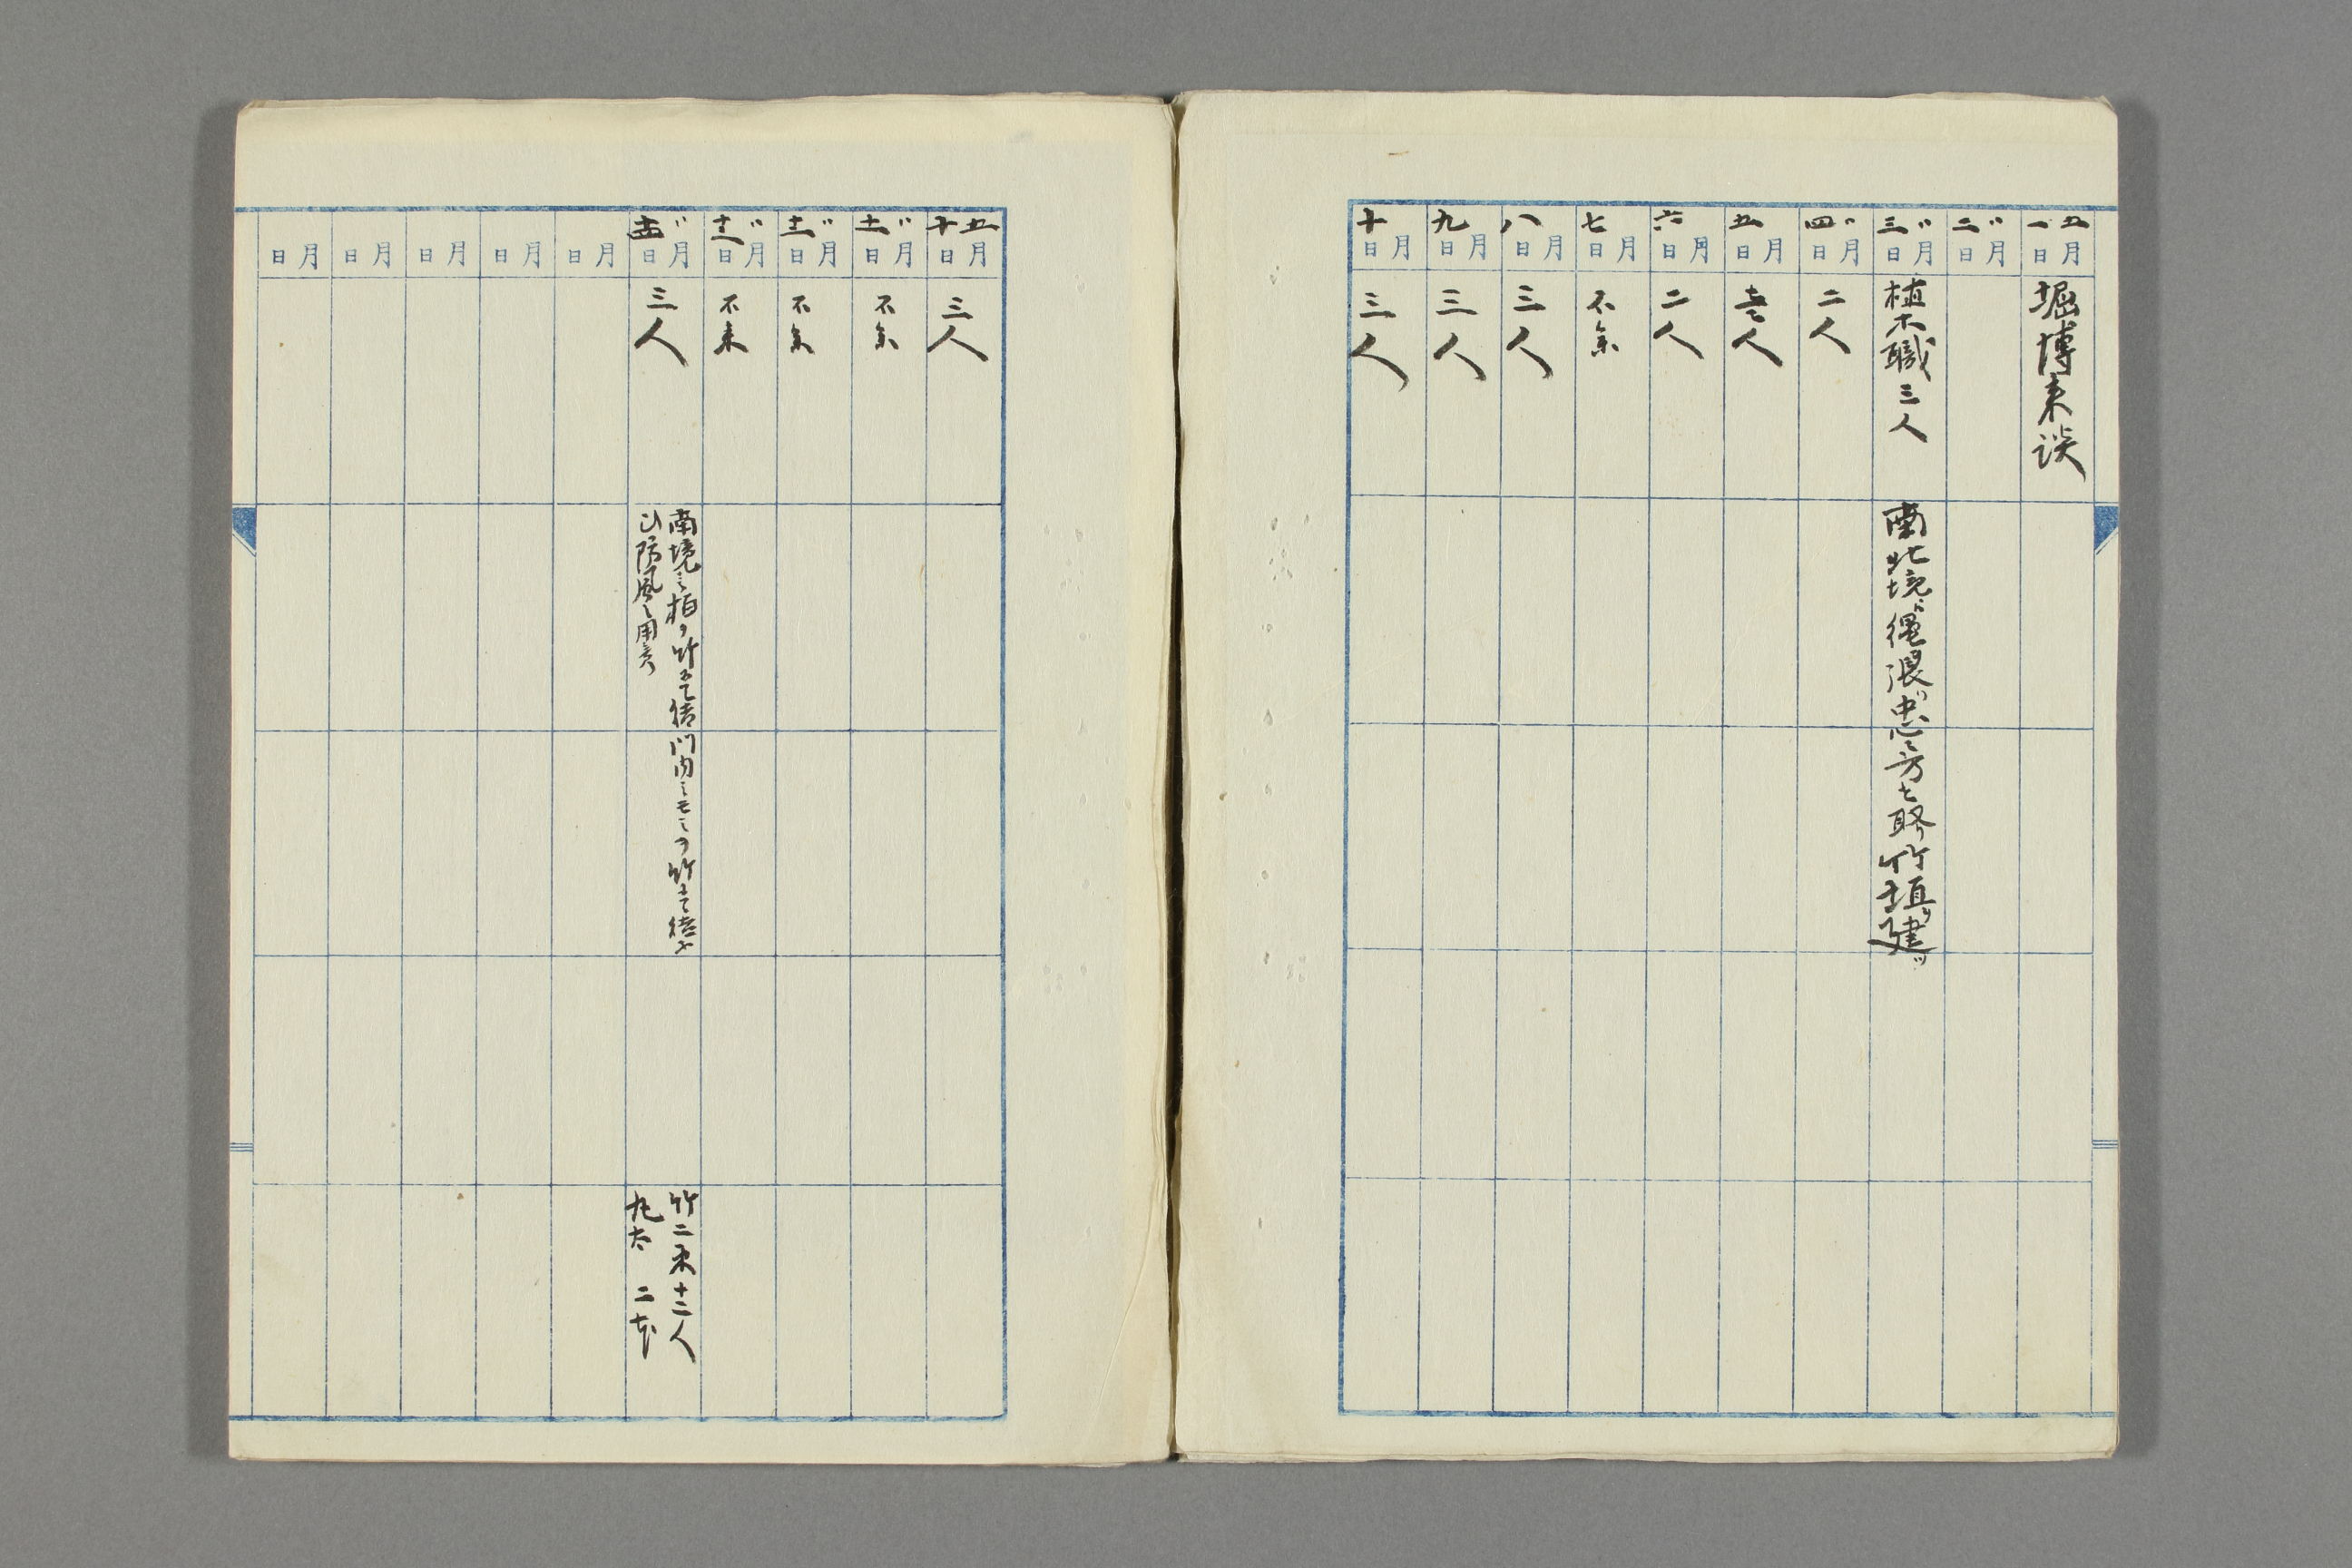 五月一日 堀博来談
〃月二日
〃月三日 植木職三人 南北境ニ縄張リ中心ノ方を取リ竹垣ヲ建ツ
〃月四日 二人
月五日 壱人
月六日 二人
月七日 不来
月八日 三人
月九日 三人
月十日 三人
五月十日 三人
〃月十一日 不来
〃月十二日 不来
〃月十三日 不来
〃月十四日 三人
南境ニ柏ヲ竹ニて結 門内ニモミヲ竹ニて結
防風ノ用意
竹二束十二人
丸太 二本
月 日
月 日
月 日
月 日
月 日